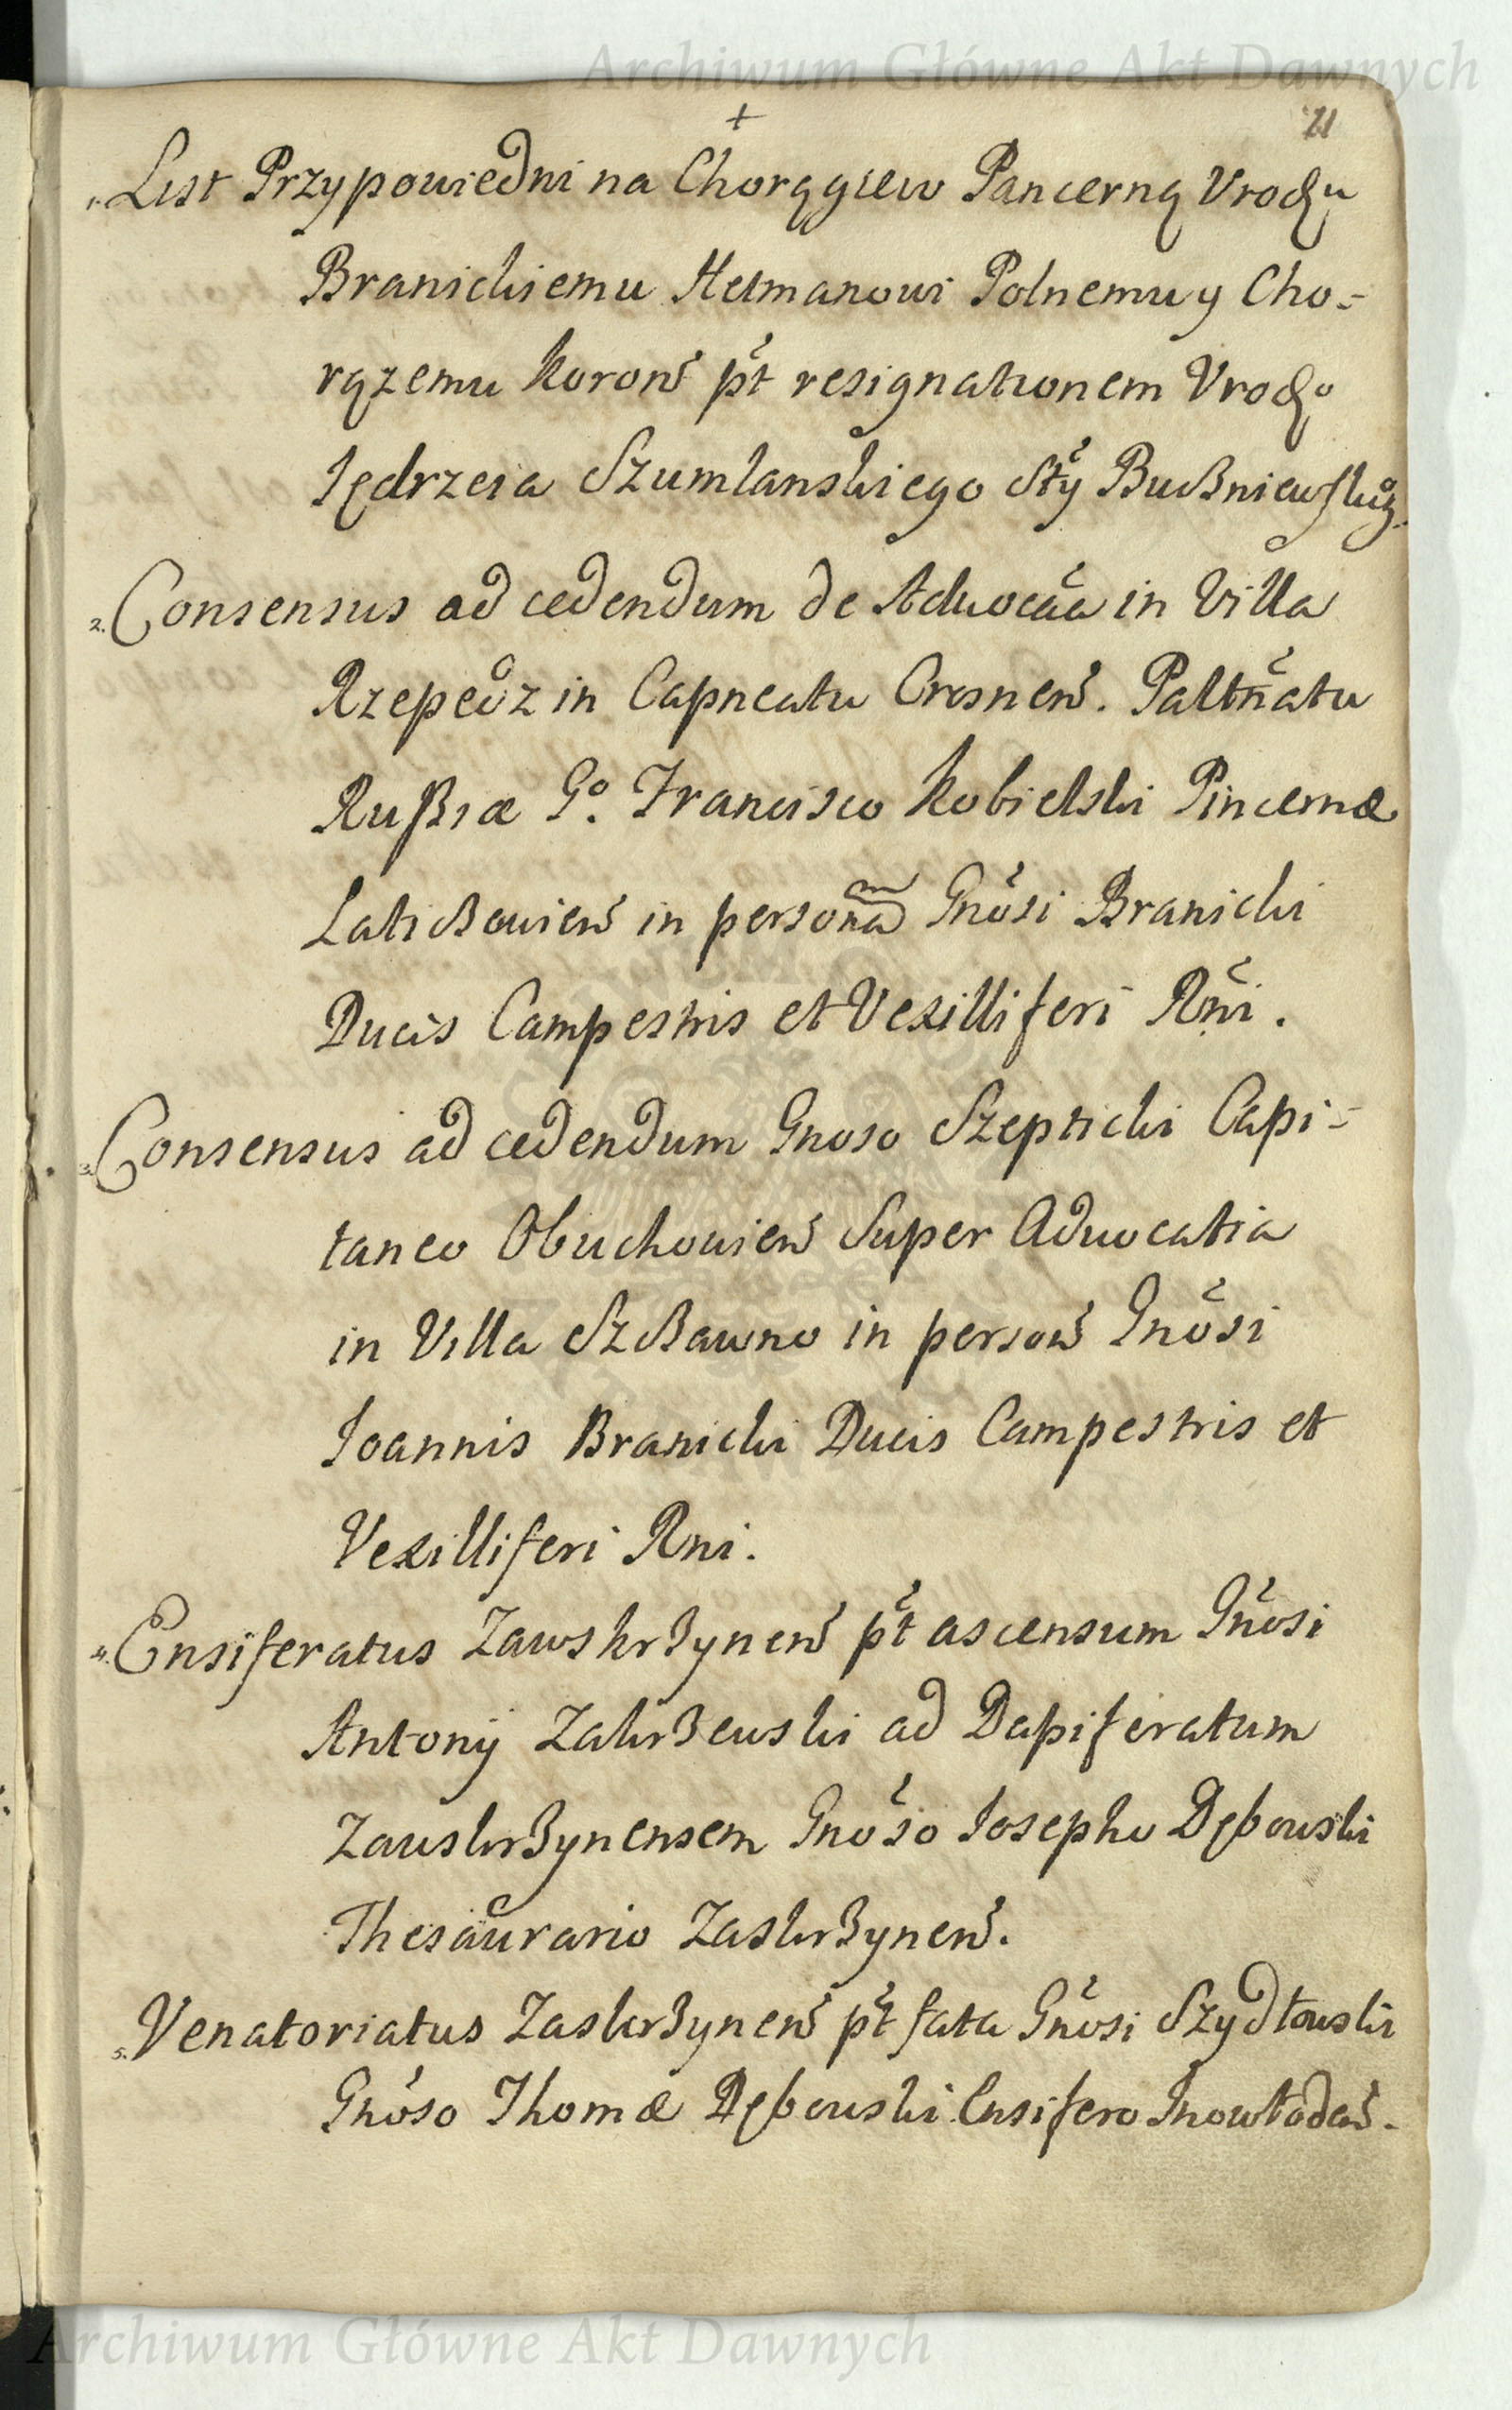 Archiwum Główne Akt Dawnych
+ 21
1. List Przypowiedni na Chorągiew Pancerną Urodzu
Branickiemu Hetmanowi Polnemu y Cho=
rązemu Koron pt resignationem Urodzo
Jędrzeia Szumlanskiego Sty
2. Consensus ad cedendum de Advocaa in Villa
Rzepedz in Capneatu Crosnen. Paltnatu
Rußiæ Go. Francisco Kobielski Pincernæ
Laticzowien in personam Gnosi Branicki
Ducis Campestris et Vexilliferi Rni.
3. Consensus ad cedendum Gnoso Szepticki Capi=
taneo Obuchowien Super Advocatia
in Villa Szczawno in person Gnosi
Ioannis Branicki Ducis Campestris et
Vexilliferi Rni.
4. Ensiferatus Zawskrzynen pt ascensum Gnosi
Antonij Zakrzewski ad Dapiferatum
Zawskrzynensem Gnoso Iosepho Dębowski
Thesaurario Zaskrzynen.
5. Venatoriatus Zaskrzynen pt fata Gnosi Szydłowski
Gnoso Thomæ Dębowski Ensifero Inowłoden.
Archiwum Główne Akt Dawnych